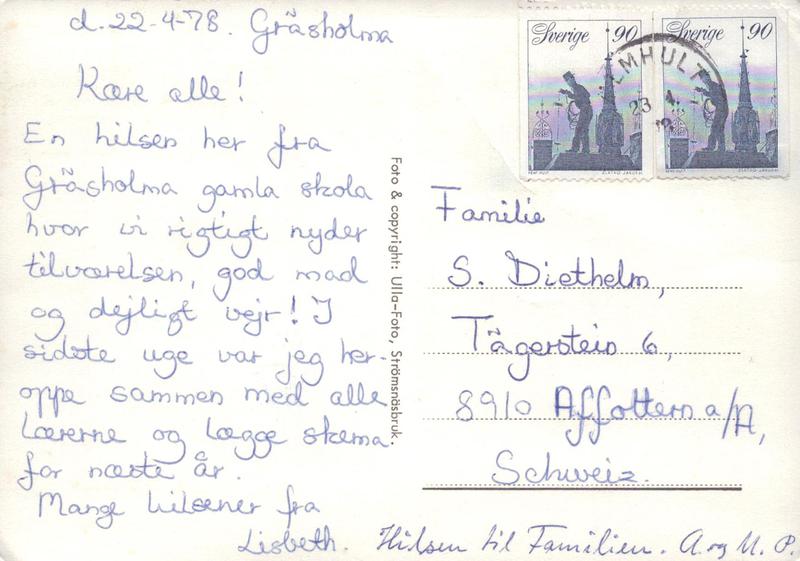 d. 22-4-78. Gräsholma
Kære alle!
En hilsen her fra
Gräsholma gamla skola
hvor vi rigtigt nyder
tilværelsen, god mad
og dejligt vejr! I
sidste uge var jeg her-
oppe sammen med alle
lærerne og lægge skema
for næste år.
Mange hilsener fra
Lisbeth.
Hilsen til Familien. A. og M. P.
Foto & copyright: Ulla-Foto, Strömsnäsbruk.
Sverige 90
Sverige 90
ÄLMHULT
23
Familie
S. Diethelm,
Tägerstein 6,
8910 Affoltern a/A,
Schweiz.